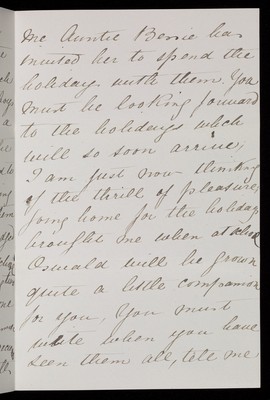 me Auntie Bessie has
invited her to spend the
holidays with them. You
must be looking forward
to the holidays which
will so soon arrive,
I am just now thinking
of the thrill of pleasure,
going home for the holidays
brought me when at school
Oswald will be grown
quite a little companion
for you, You must
write when you have
seen them all, tell me